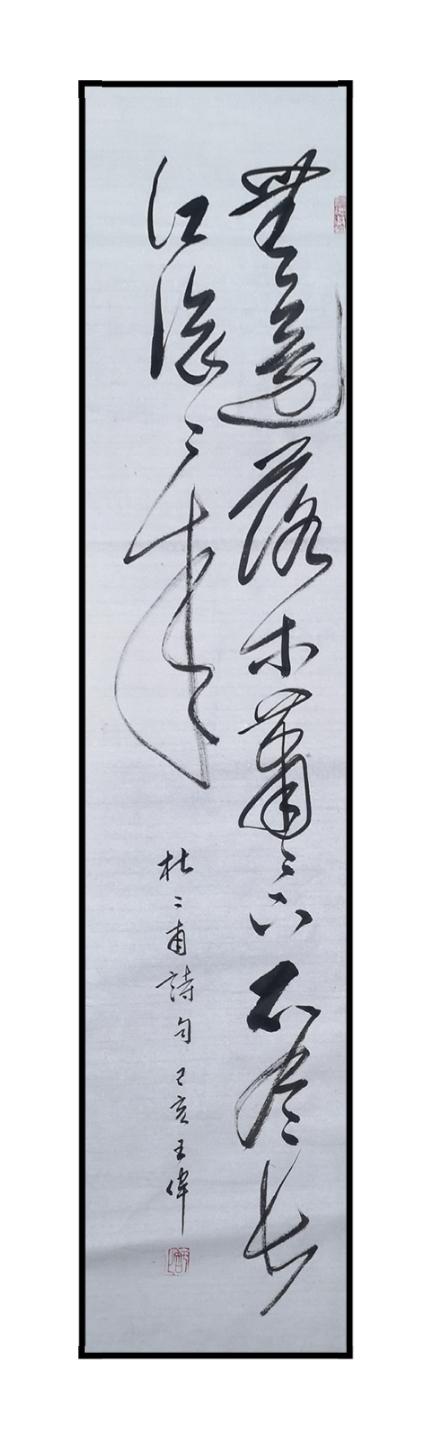 無邊落木蕭〻下不盡長
江滾〻來
杜〻甫詩句己亥王偉